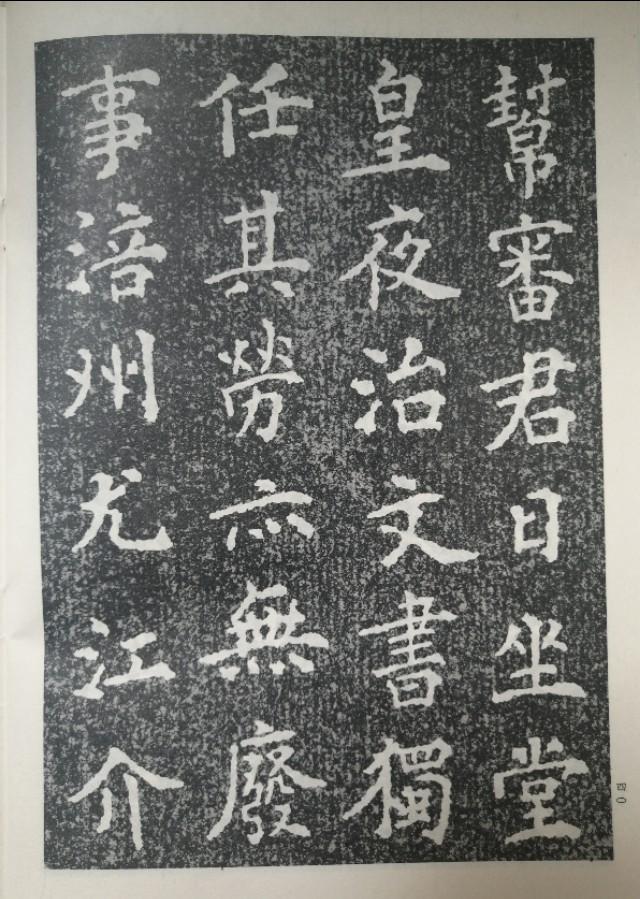 幇審君日坐堂
皇夜治文書獨
任其勞亦無廢
事涪州尤江介
四〇